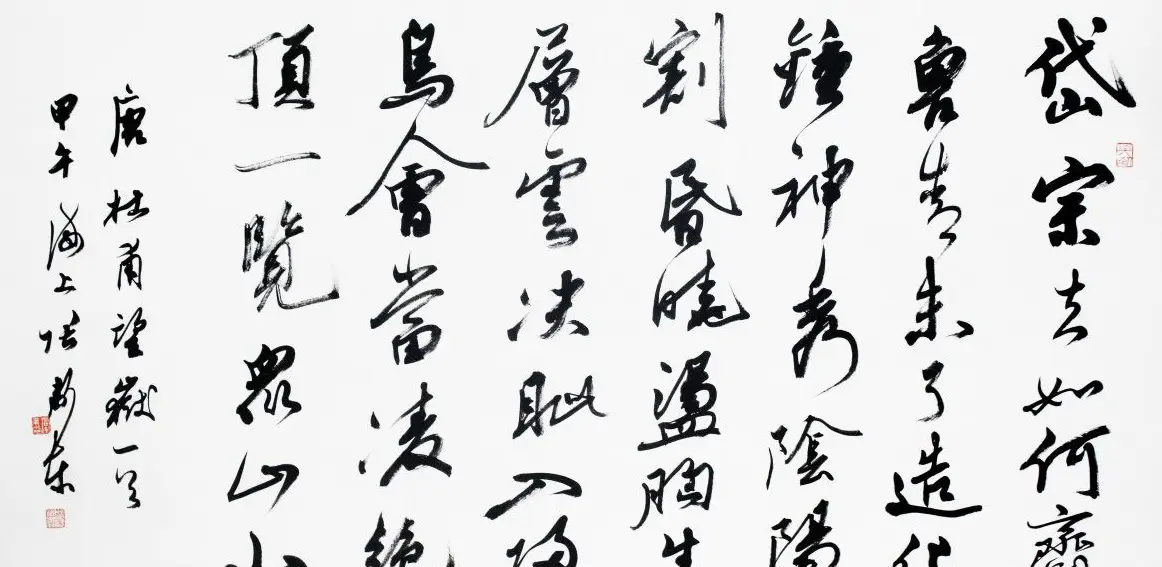 岱宗夫如何齊
魯青未了造化
鍾神秀陰陽
割昏曉盪胸生
層雲决眦入歸
鳥會當凌絕
頂一覽眾山小
唐杜甫望嶽一首
甲午海上張東